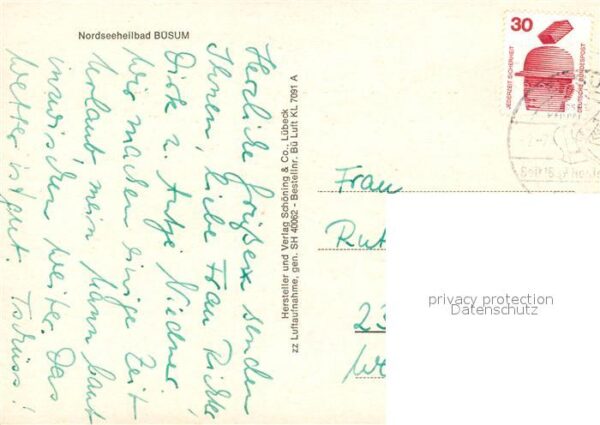 Nordseeheilbad BÜSUM
Herzliche Grüße senden
Ihnen, liebe Frau Richter,
Dirk u. Antje Niedner.
Wir machen einige Zeit
Urlaub, mein Mann baut
inzwischen weiter. Das
Wetter ist gut. Tschüss!
Hersteller und Verlag Schöning & Co., Lübeck
zz Luftaufnahme, gen. SH 40062 - Bestellnr. Bü Luft KL 7091 A
30
JEDERZEIT SICHERHEIT
DEUTSCHE BUNDESPOST
Frau
Rut
23
privacy protection
Datenschutz